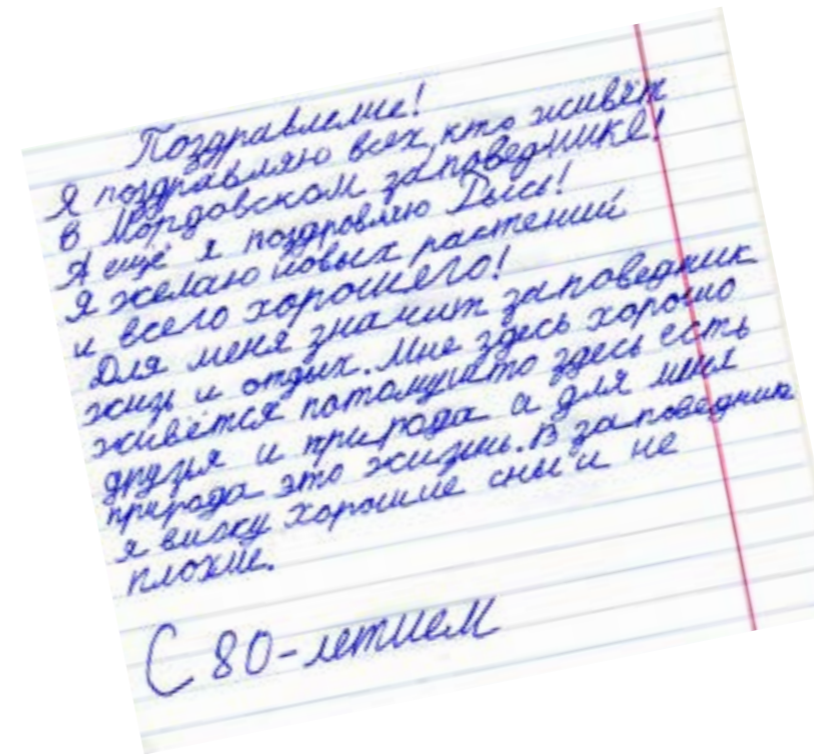 Поздравление!
Я поздравляю всех, кто живёт
в Мордовском заповеднике!
А ещё я поздровляю Рысь!
Я желаю новых растений
и всего хорошего!
Для меня значит заповедник
жизь и отдых. Мне здесь хорошо
живётся потомушто здесь есть
друзья и природа а для меня
природа это жизнь. В заповедник
я вижу хорошие сны и не
плохие.
С 80-летием